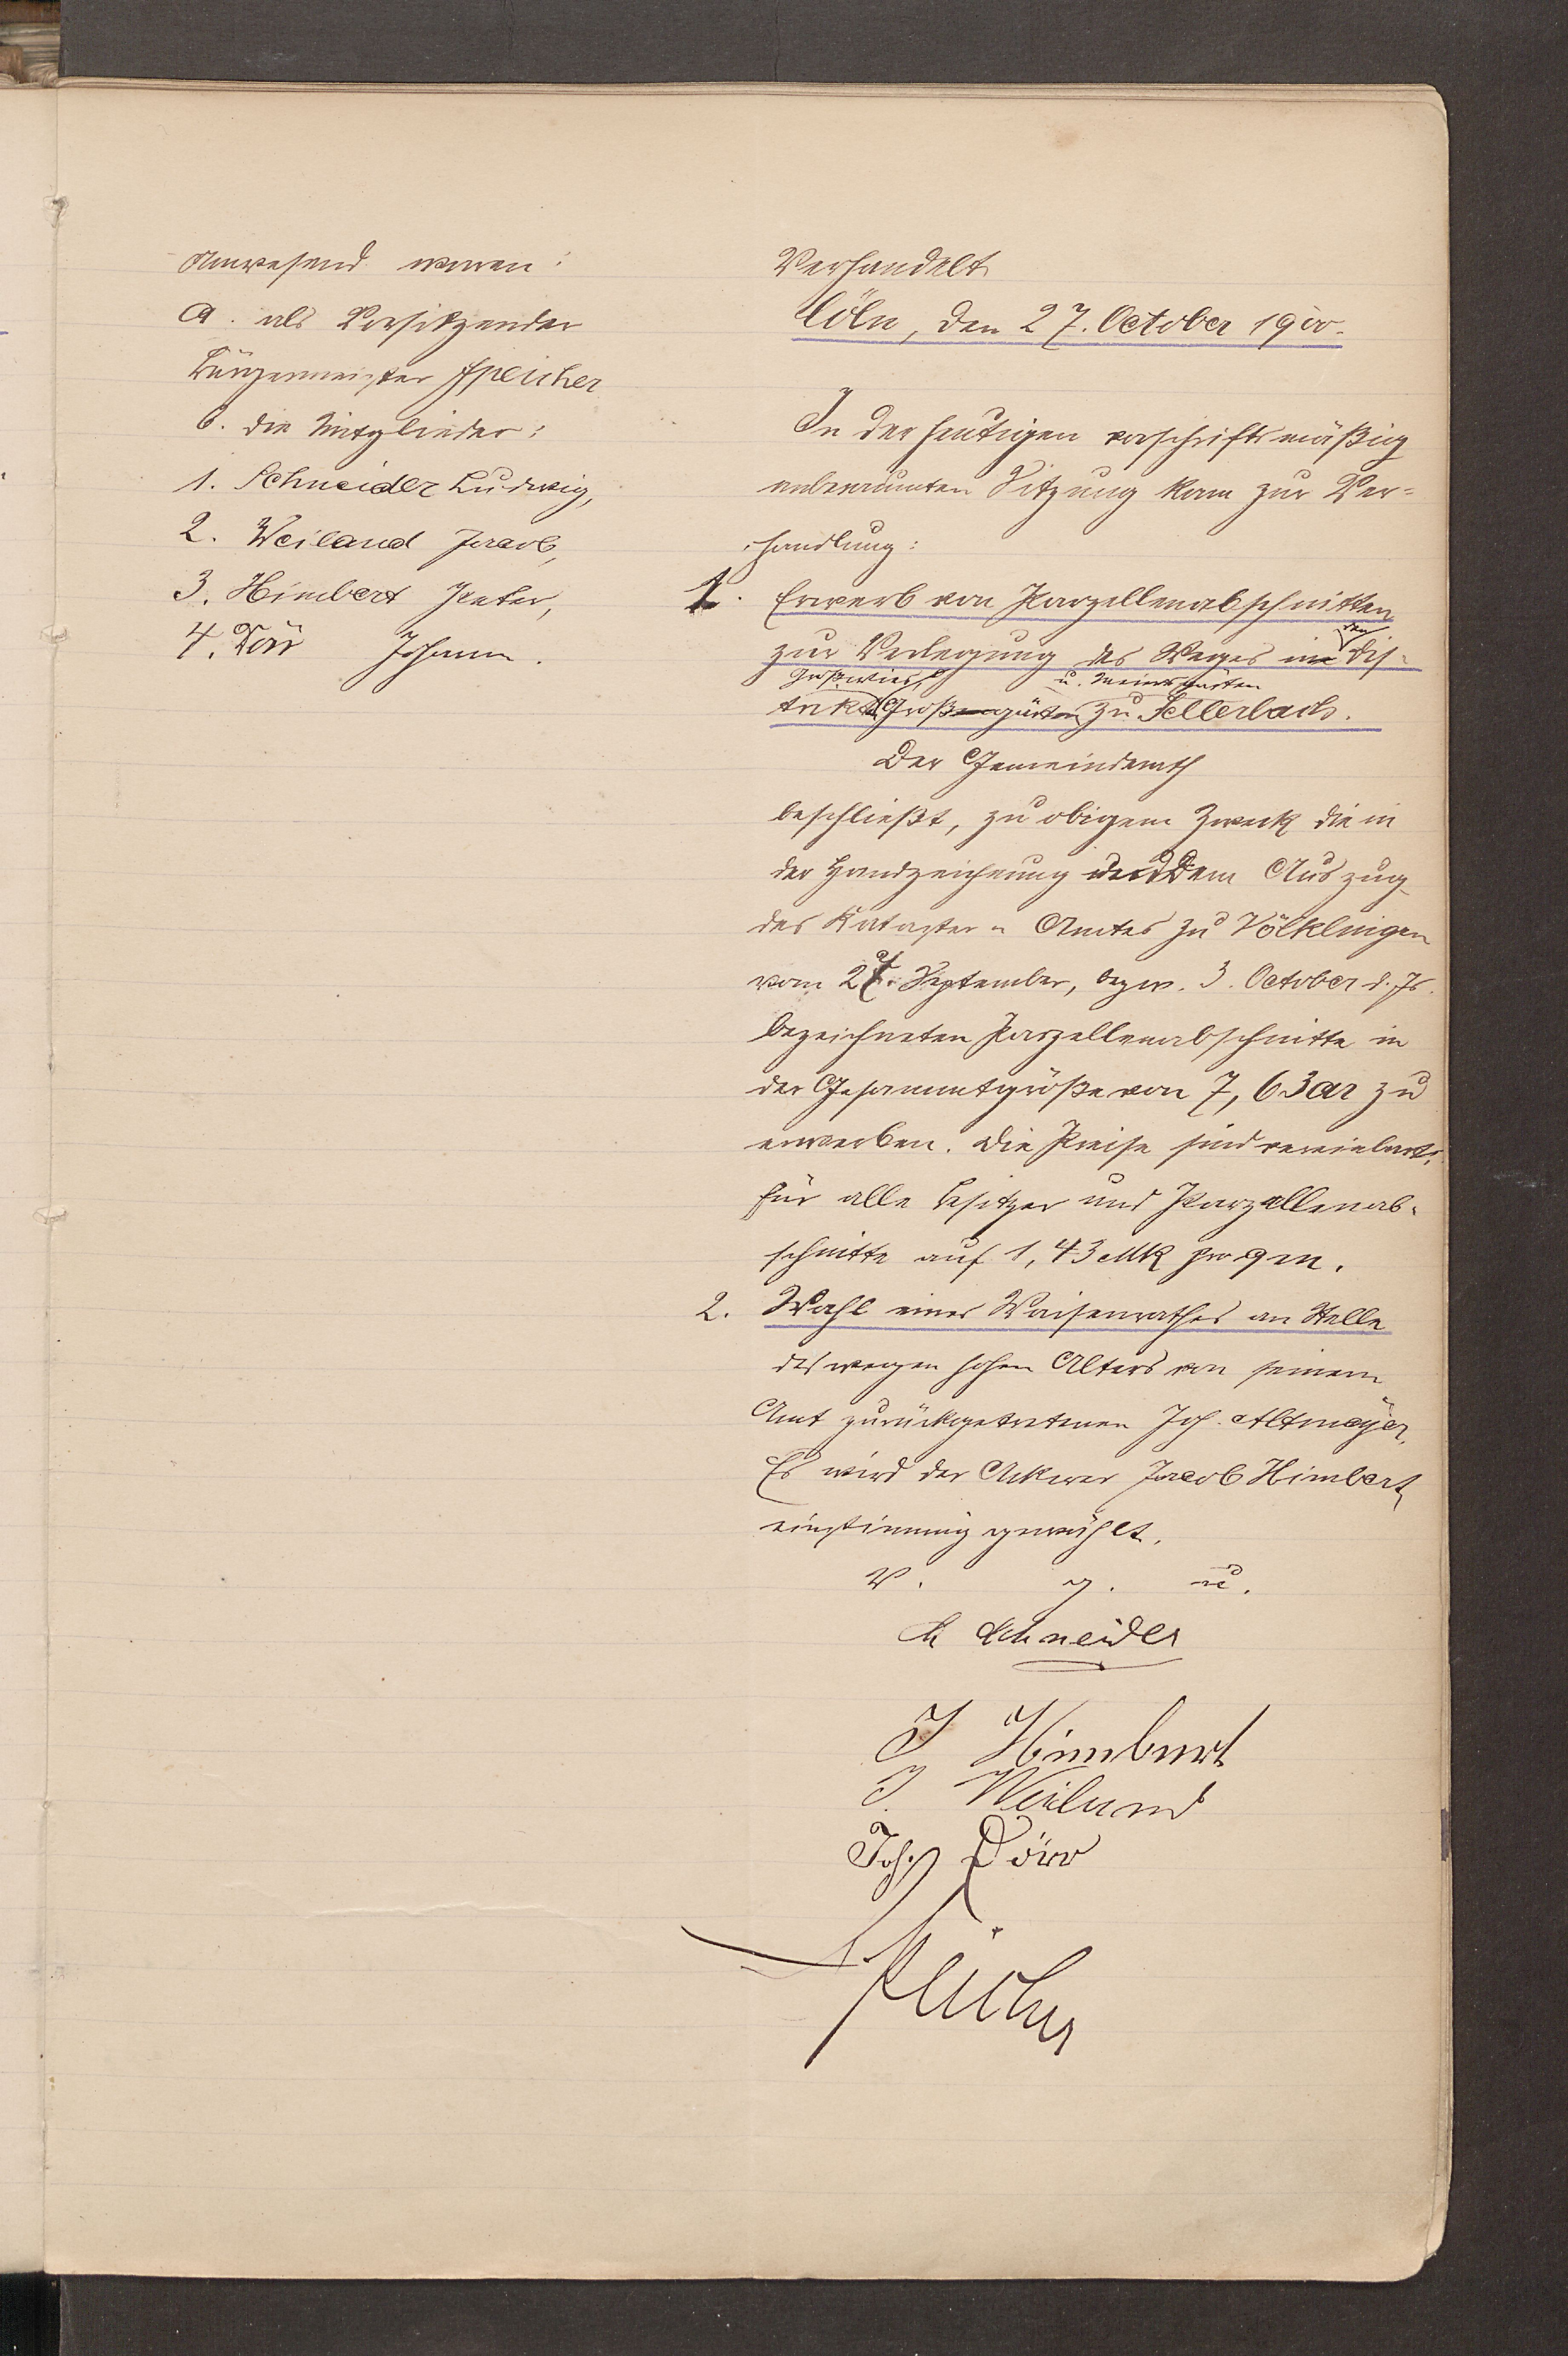 Anwesend waren:
a. als Vorsitzender
Bürgermeister Speicher
b. die Mitglieder:
1. Schneider Ludwig,
2. Weiland Jacob,
3. Himbert Peter,
4. Dörr Johann.
Verhandelt
Cöln, den 27. October 1900.
In der heutigen vorschriftsmäßig
anberaumten Sitzung kam zur Ver-
handlung:
1. Erwerb von Parzellenabschnitten
zur Verlegung des Weges in den Dis-
Großwies u. gärten
trikten Großengärten zu Sellerbach.
Der Gemeinderath
beschließt, zu obigem Zweck die in
der Handzeichnung und dem Auszug
des Kataster-Amtes zu Völklingen
vom September, bezw. 3. October d. Js.
bezeichneten Parzellenabschnitte in
der Gesammtgröße von 7,63 ar zu
erwerben. Die Preise sind vereinbart,
für alle Besitzer und Parzellenab-
schnitte auf 1,43 Mk pro qm.
2. Wahl eines Waisenrathes an Stelle
des wegen hohen Alters von seinem
Amt zurückgetretenen Joh. Altmeyer.
Es wird der Ackerer Jacob Himbert
einstimmig gewählt.
V. g. u.
L Schneider
P Himbert
J. Weiland
Joh. Dörr
Speicher